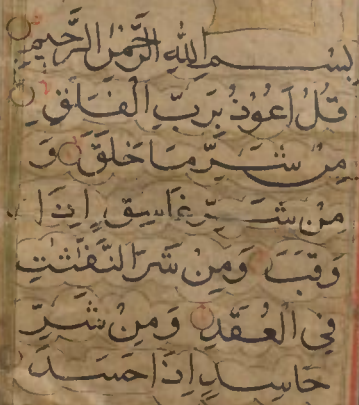 بِسْمِ اللهِ الرَّحْمٰنِ الرَّحِيْمِ
قُلْ اَعُوْذُ بِرَبِّ الْفَلَقِ
مِنْ شَرِّ مَا خَلَقَ وَ
مِنْ شَرِّ غَاسِقٍ اِذَا
وَقَبَ وَمِنْ شَرِّ النَّفّٰثٰتِ
فِي الْعُقَدِ وَمِنْ شَرِّ
حَاسِدٍ اِذَا حَسَدَ